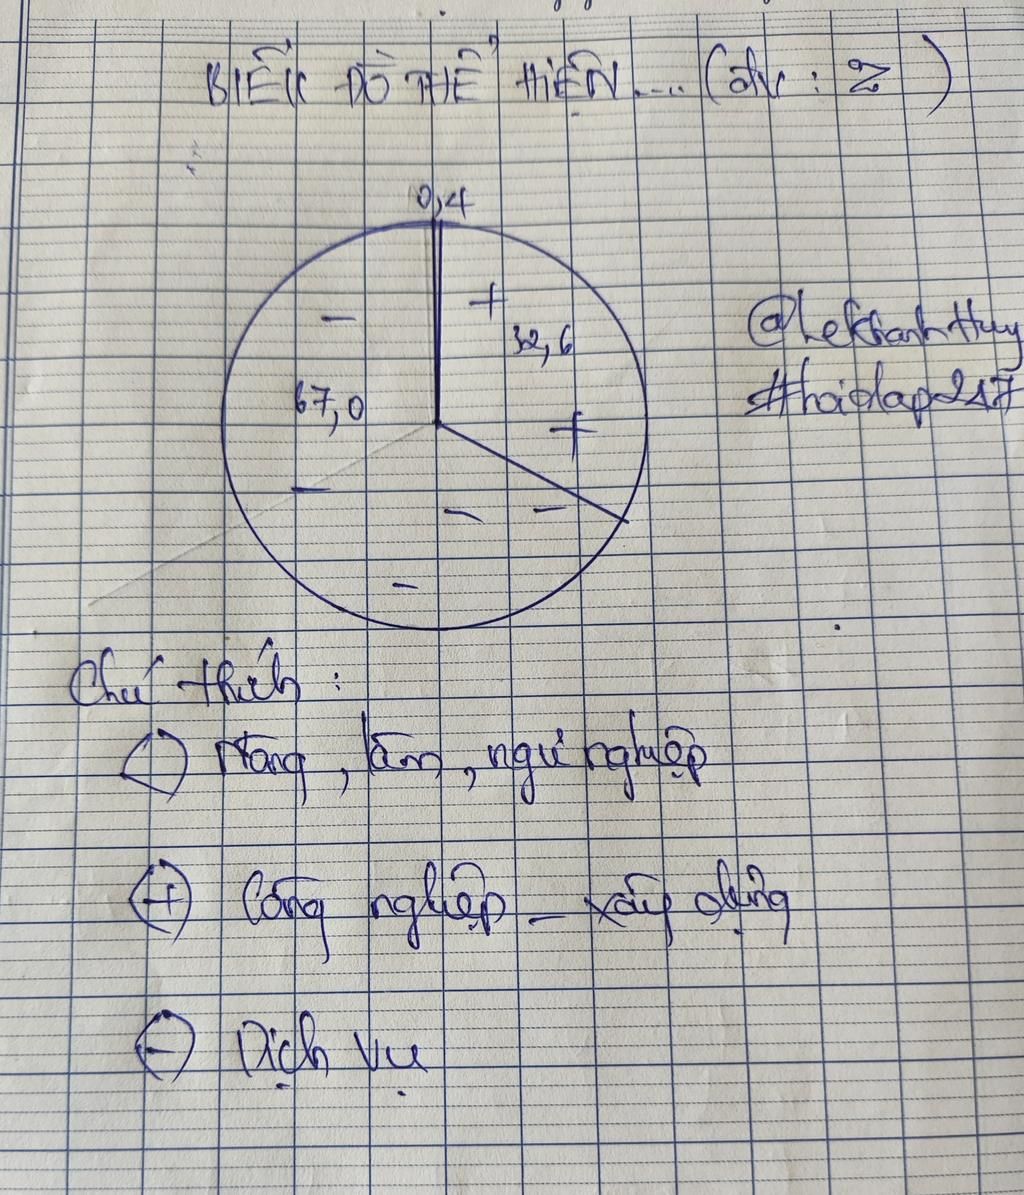 BIỂU ĐỒ THỂ HIỆN.... (đv: %)
0,4
+
32,6
-
67,0
+
-
- -
-
@LeKhanhHuy
#hoidap247
Chú thích:
( ) Nông, lâm, ngư nghiệp
(+) Công nghiệp - xây dựng
(-) Dịch vụ